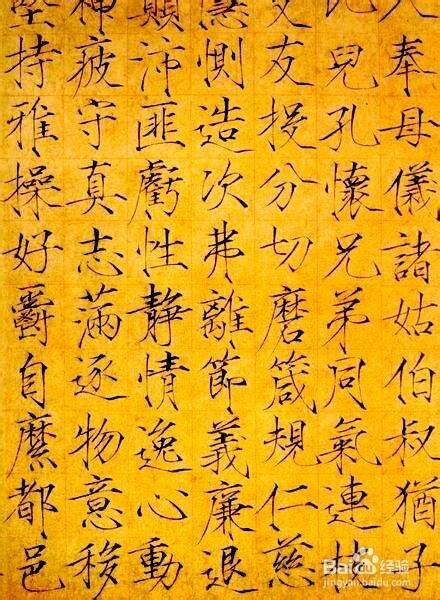 入奉母儀諸姑伯叔猶子
比兒孔懷兄弟同氣連枝
交友投分切磨箴規仁慈
隱惻造次弗離節義廉退
顛沛匪虧性靜情逸心動
神疲守真志滿逐物意移
堅持雅操好爵自縻都邑
Bai 经验
jingyan.baidu.com